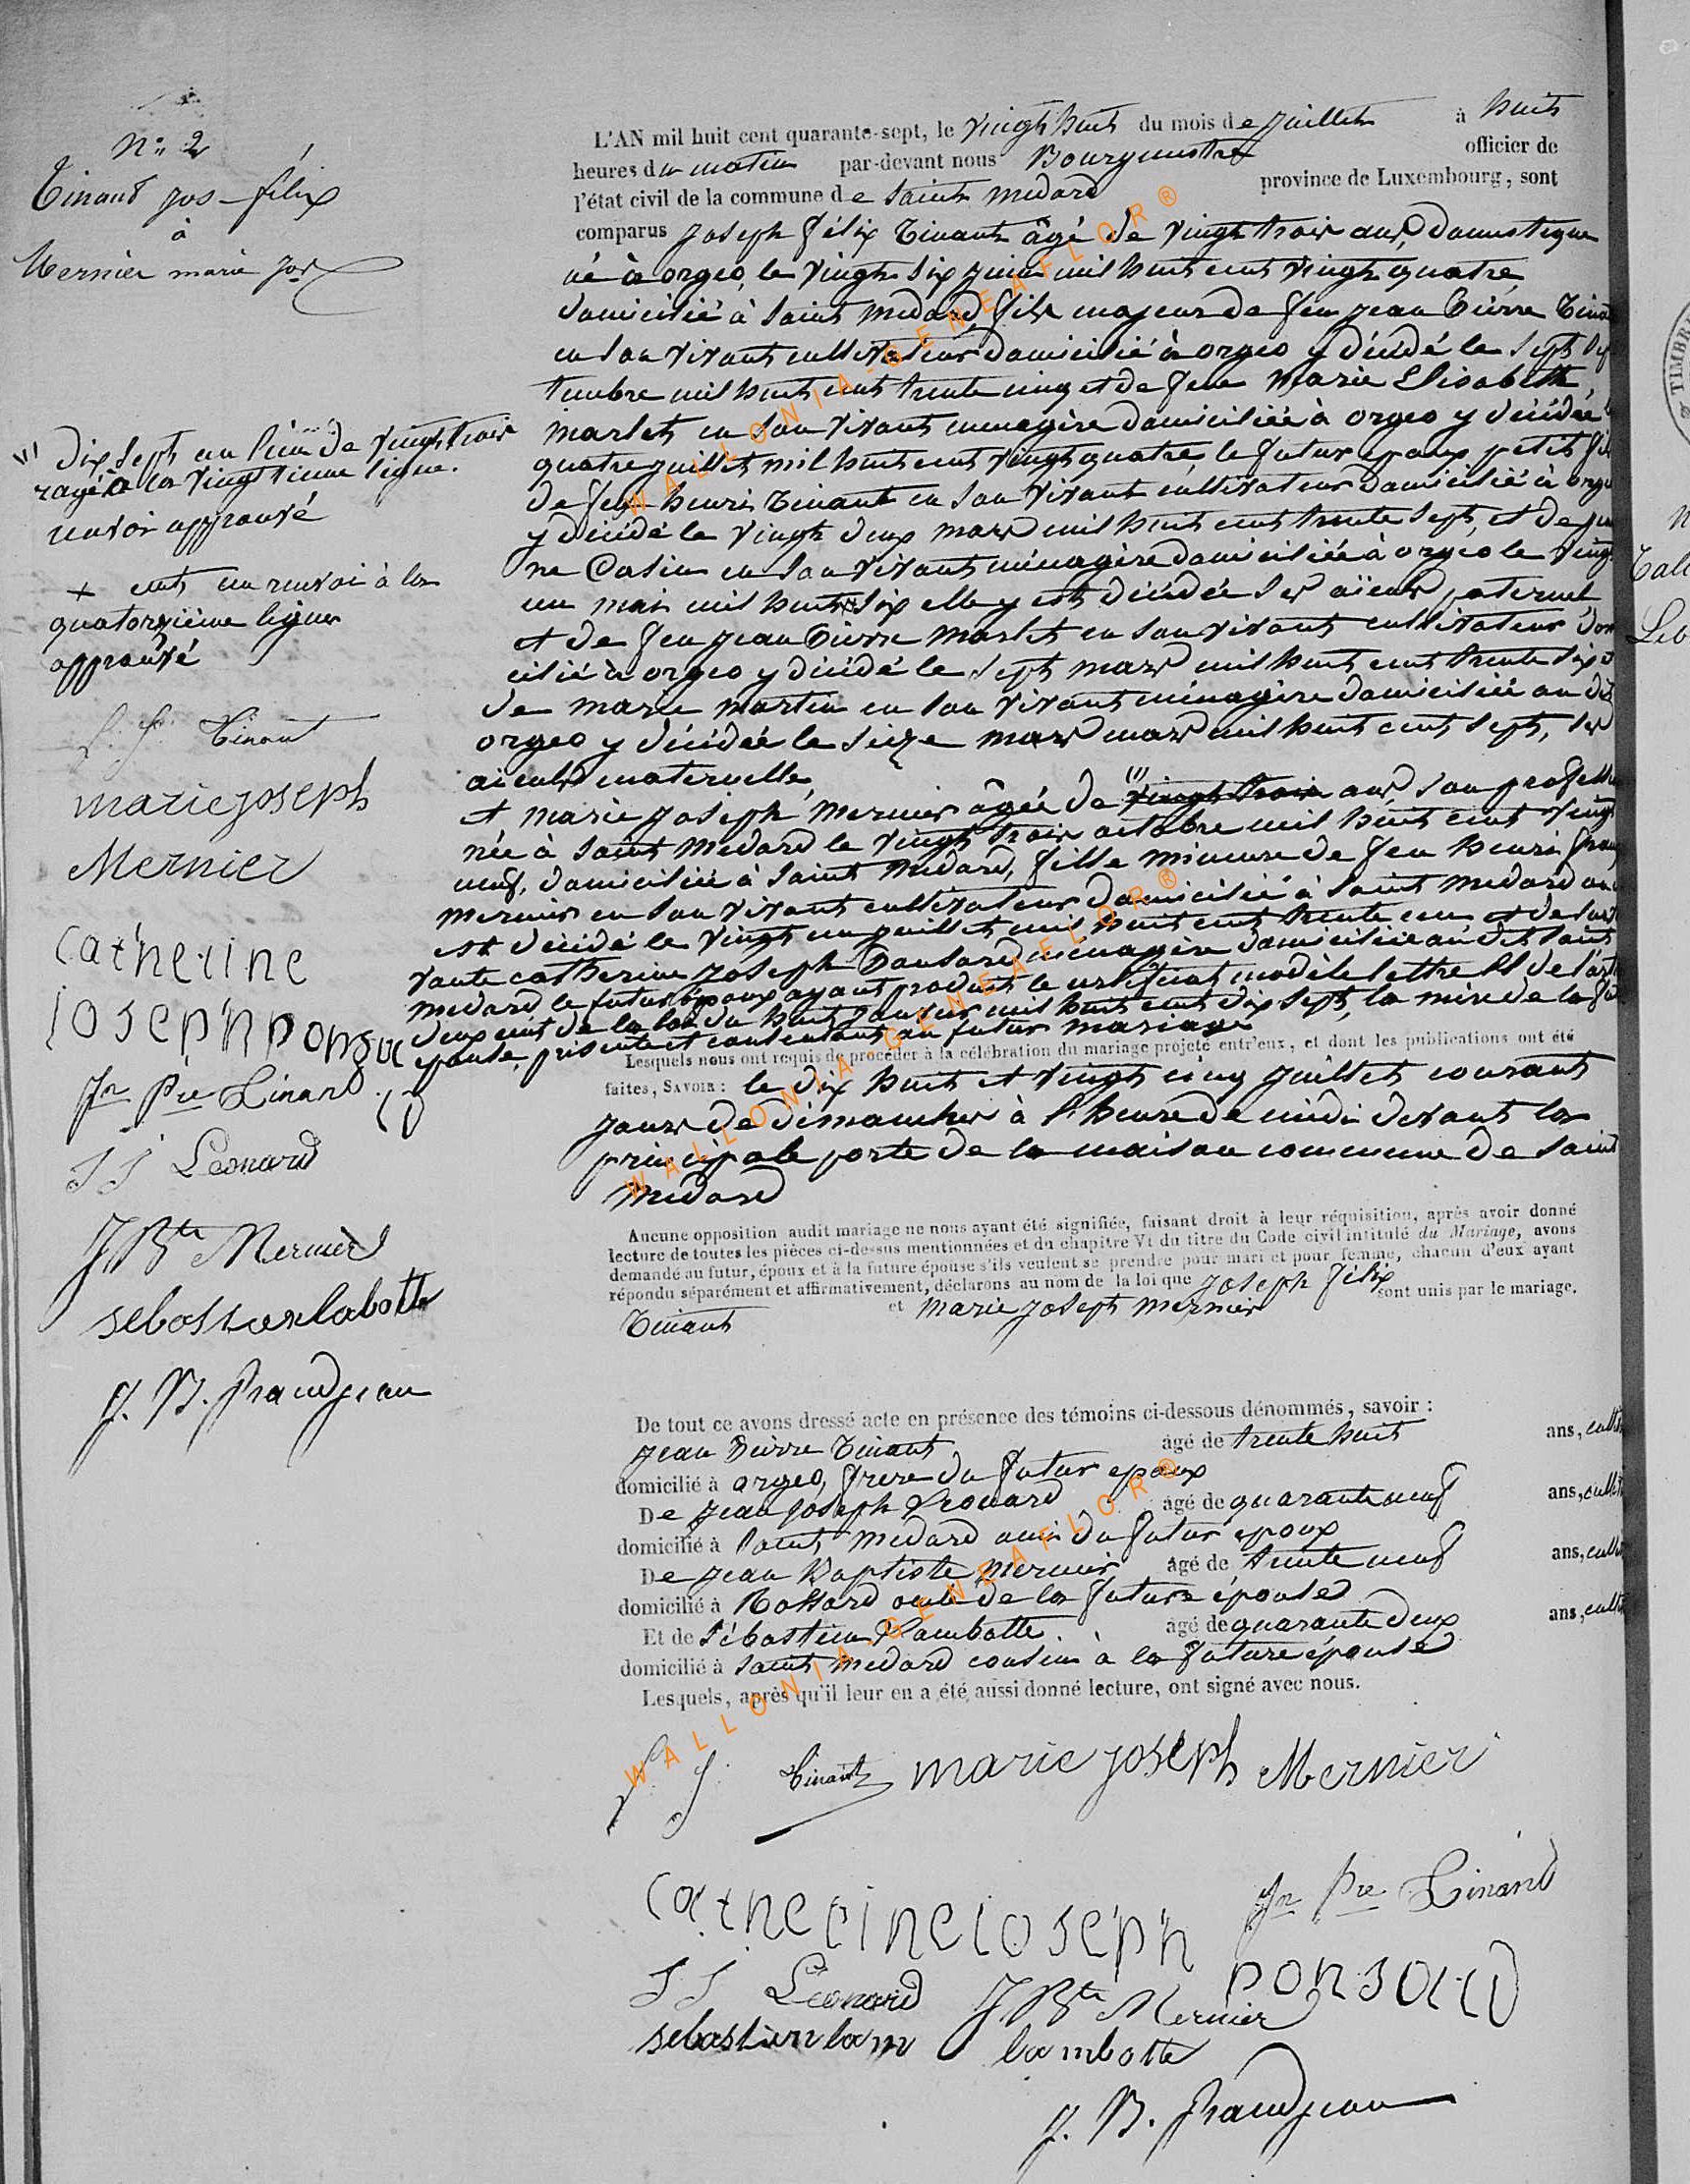 N° 2
Tinant Jos-félix
à
Mernier marie Jos
L'AN mil huit cent quarante-sept, le vingt huit du mois de juillet à huit
heures du matin par-devant nous Bourgmestre officier de
l'état civil de la commune de saint medard province de Luxembourg, sont
comparus joseph félix Tinant âgé de vingt trois ans, domestique
né à orgeo, le vingt six juin mil huit cent vingt quatre
domicilié à saint medard, fils majeur de feu jean Pierre
en son vivant cultivateur domicilié à orgeo y décédé le sept sep
tembre mil huit cent trente cinq et de feue Marie Elisabeth
marlet en son vivant menagère domiciliée à orgeo y décédée
quatre juillet mil huit cent vingt quatre, le futur epoux petit fils
de feu henri Tinant en son vivant cultivateur domicilié à
y décédé le vingt deux mars mil huit cent trente sept, et de
ne en son vivant ménagère domiciliée à orgeo le vingt
un mai mil huit + six elle y est décédée ses aïeux paternel
et de feu jean Pierre marlet en son vivant cultivateur dom
cilié à orgeo y décédé le sept mars mil huit cent trente six
de marie martin en son vivant ménagère domiciliée au dit
orgeo y décédée le seize mars mars mil huit cent sept, ses
aieuls maternelle,
et marie joseph Mernier âgée de (1) vingt trois ans sans
née à saint Medard le vingt trois octobre mil huit cent vingt
neuf, domiciliée à saint Medard, fille mineure de feu henri
mernier en son vivant cultivateur domicilié à saint medard
est décédé le vingt un juillet mil huit cent trente un et de sur
vante catherine joseph Ponsard menagère domiciliée au dit saint
medard le futur époux ayant produit le certificat modèle lettre de l'
deux cent de la loi du huit janvier mil huit cent dix sept, la mère de la
epouse, présente et consentant au futur mariage
Lesquels nous ont requis de procéder à la célébration du mariage projeté entr'eux, et dont les publications ont été
faites, SAVOIR : le dix huit et vingt cinq juillet courant
jours de dimanches à l'heure de midi devant la
principale porte de la maison commune de saint
medard
Aucune opposition audit mariage ne nous ayant été signifiée, faisant droit à leur réquisition, après avoir donné
lecture de toutes les pièces ci-dessus mentionnées et du chapitre VI du titre du Code civil intitulé du Mariage, avons
demandé au futur, époux et à la future épouse s'ils veulent se prendre pour mari et pour femme, chacun d'eux ayant
répondu séparément et affirmativement, déclarons au nom de la loi que joseph félix
Tinant et marie joseph mernier sont unis par le mariage.
De tout ce avons dressé acte en présence des témoins ci-dessous dénommés, savoir :
jean Pierre Tinant âgé de trente huit ans,
domicilié à orgeo, frere du futur epoux
De jean joseph Léonard âgé de quarante neuf ans,
domicilié à saint medard ami du futur epoux
De jean Baptiste Mernier âgé de trente neuf ans,
domicilié à oncle de la future épouse
Et de sébastien Lambotte âgé de quarante deux ans,
domicilié à saint medard cousin à la future épouse
Lesquels, après qu'il leur en a été aussi donné lecture, ont signé avec nous.
Tinant marie joseph Mernier
Jn Pre Tinant
catherine ioseph ponsard
J J Léonard J Bte Mernier
sebastien lam lambotte
J. B. Grandjean
(1) dix sept au lieu de vingt trois
rayé à la vingtieme ligne.
renvoi approuvé
+ cent en renvoi à la
quatorzième ligne
approuvé
Tinant
marie joseph
Mernier
catherine
ioseph ponsa
rd
Jn Pre Tinant
J J Leonard
J Bte Mernier
J. B. Grandjean
WALLONIA-GENEAFLOR®
WALLONIA-GENEAFLOR®
WALLONIA-GENEAFLOR®
TIMBRE